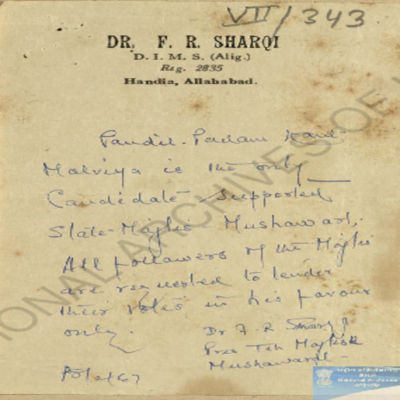 VII/343
DR. F. R. SHARQI
D. I. M. S. (Alig.)
Reg. 2835
Handia, Allahabad.
Pandit. Padam Kand
Malviya is the only
Candidate supported
State-Majlis Mushawarat.
All followers of the Majlis
are requested to tender
their votes in his favour
only.
Dr F. R Sharqi
Pres Teh Majlis
Mushawarat